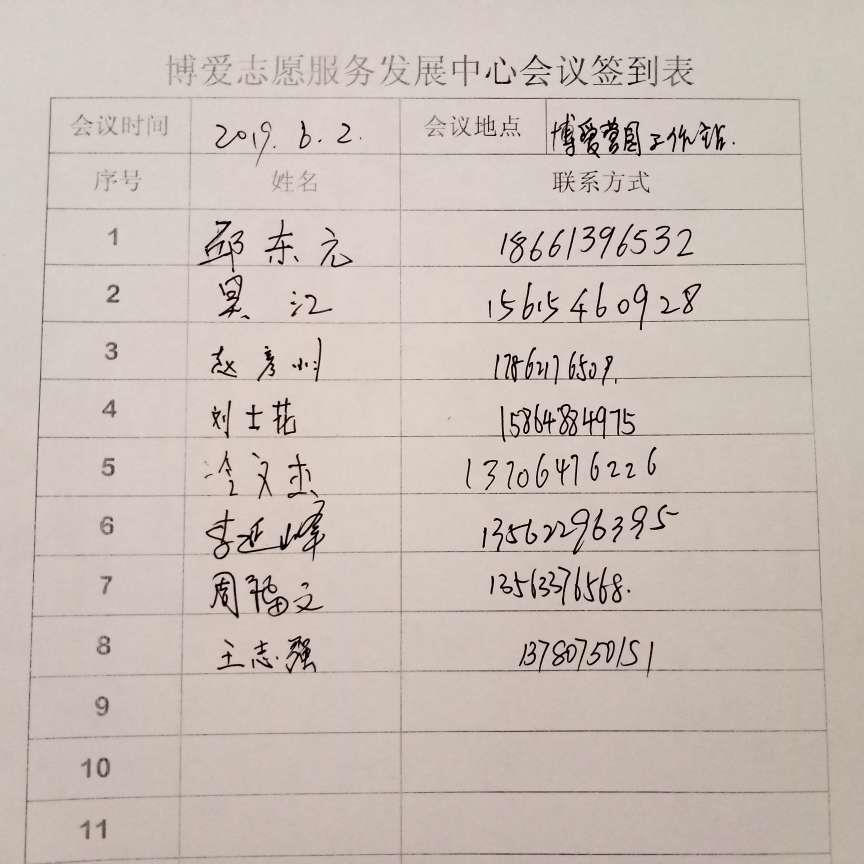 博爱志愿服务发展中心会议签到表
会议时间 2019.6.2. 会议地点 博爱营图工作站.
序号 姓名 联系方式
1 邱东元 18661396532
2 吴江 15615460928
3 赵彦州 17862176509.
4 刘士花 15864884975
5 冷文杰 13706476226
6 李延峰 13562296395
7 周福文 13563376568.
8 王志强 13780750151
9
10
11